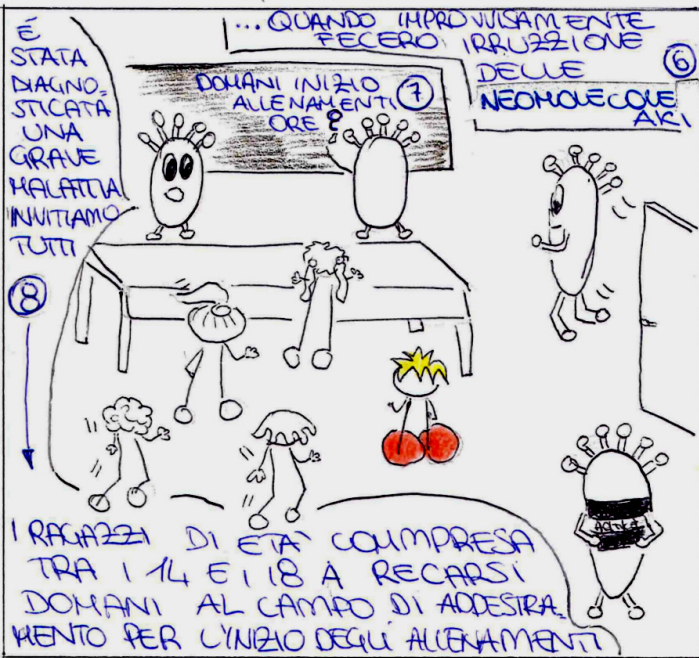 ...QUANDO IMPROVVISAMENTE
FECERO IRRUZZIONE
DELLE
NEOMOLECOLE
AKI
6
DOMANI INIZIO
ALLENAMENTI
ORE ?
7
É
STATA
DIAGNO-
STICATA
UNA
GRAVE
MALATTIA
INVITIAMO
TUTTI
8
I RAGAZZI DI ETA' COMMPRESA
TRA I 14 E I 18 A RECARSI
DOMANI AL CAMPO DI ADDESTRA-
MENTO PER L'INIZIO DEGLI ALLENAMENTI